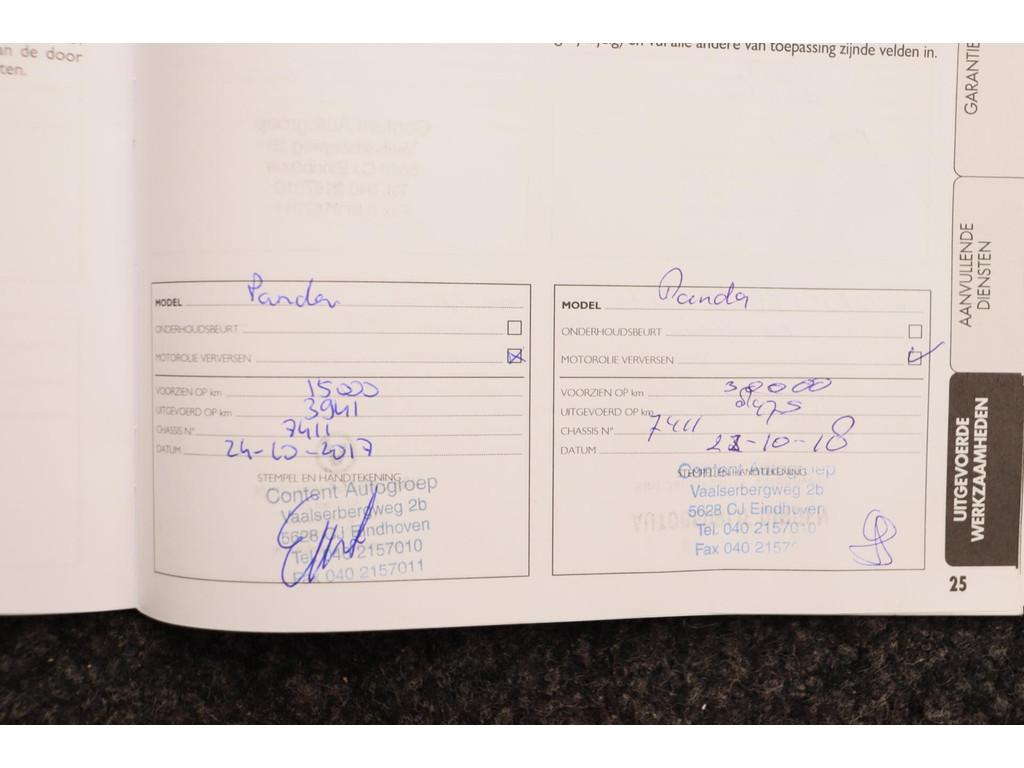 an de door
ten.
van toepassing zijnde velden in.
MODEL Panda
ONDERHOUDSBEURT
MOTOROLIE VERVERSEN
VOORZIEN OP km 15000
UITGEVOERD OP km 3941
CHASSIS N° 7411
DATUM 24-10-2017
STEMPEL EN HANDTEKENING
Content Autogroep
Vaalserbergweg 2b
5628 CJ Eindhoven
Tel. 040 2157010
Fax 040 2157011
MODEL Panda
ONDERHOUDSBEURT
MOTOROLIE VERVERSEN
VOORZIEN OP km 30000
UITGEVOERD OP km
CHASSIS N° 7411
DATUM
STEMPEL EN HANDTEKENING
Content Autogroep
Vaalserbergweg 2b
5628 CJ Eindhoven
Tel. 040 2157010
Fax 040 2157
GARANTIE
AANVULLENDE
DIENSTEN
UITGEVOERDE
WERKZAAMHEDEN
25